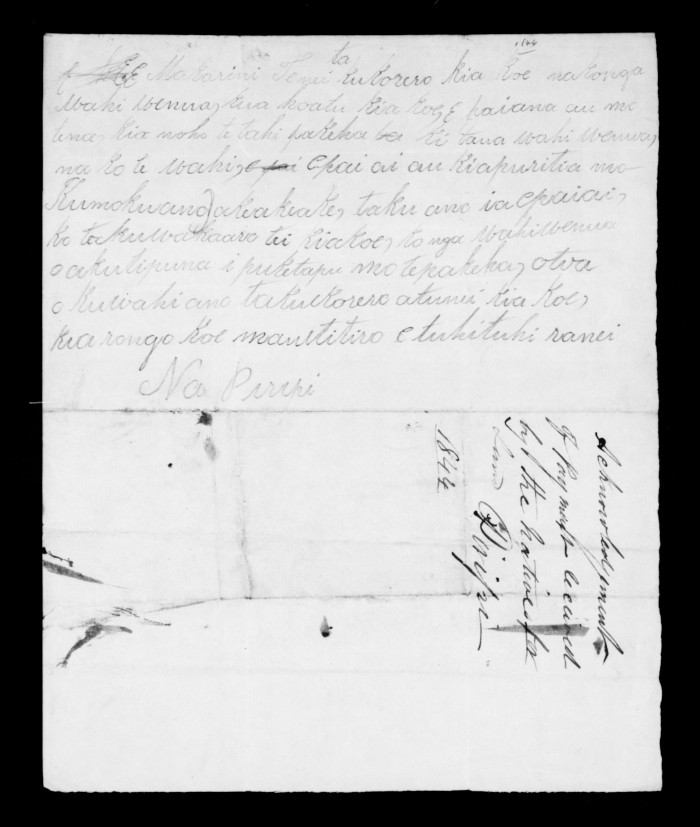 1844
E Makarini Tenei ta kukorero kia koe na konga
wahi wenua, kua hoatu kia koe, E paiana au mo
tena, kia noho te tahi pakeha ki tana wahi wenua,
na ko te wahi, e pai Epai ai au kiapuritia mo
Kumokuano, akeakeake, taku ano ia epaiai,
ko takuwakaaro tii kiakoe, ko nga wahiwenua
o akutipuna i puketapu mo tepakeha, otva
o kuwahi ano takukorero atunei kia koe,
kia rongo koe mau titiro e tuhituhi ranei
Na Piripi
Acknowledgment
of Payment received
by the natives for
Land Piripi
1844